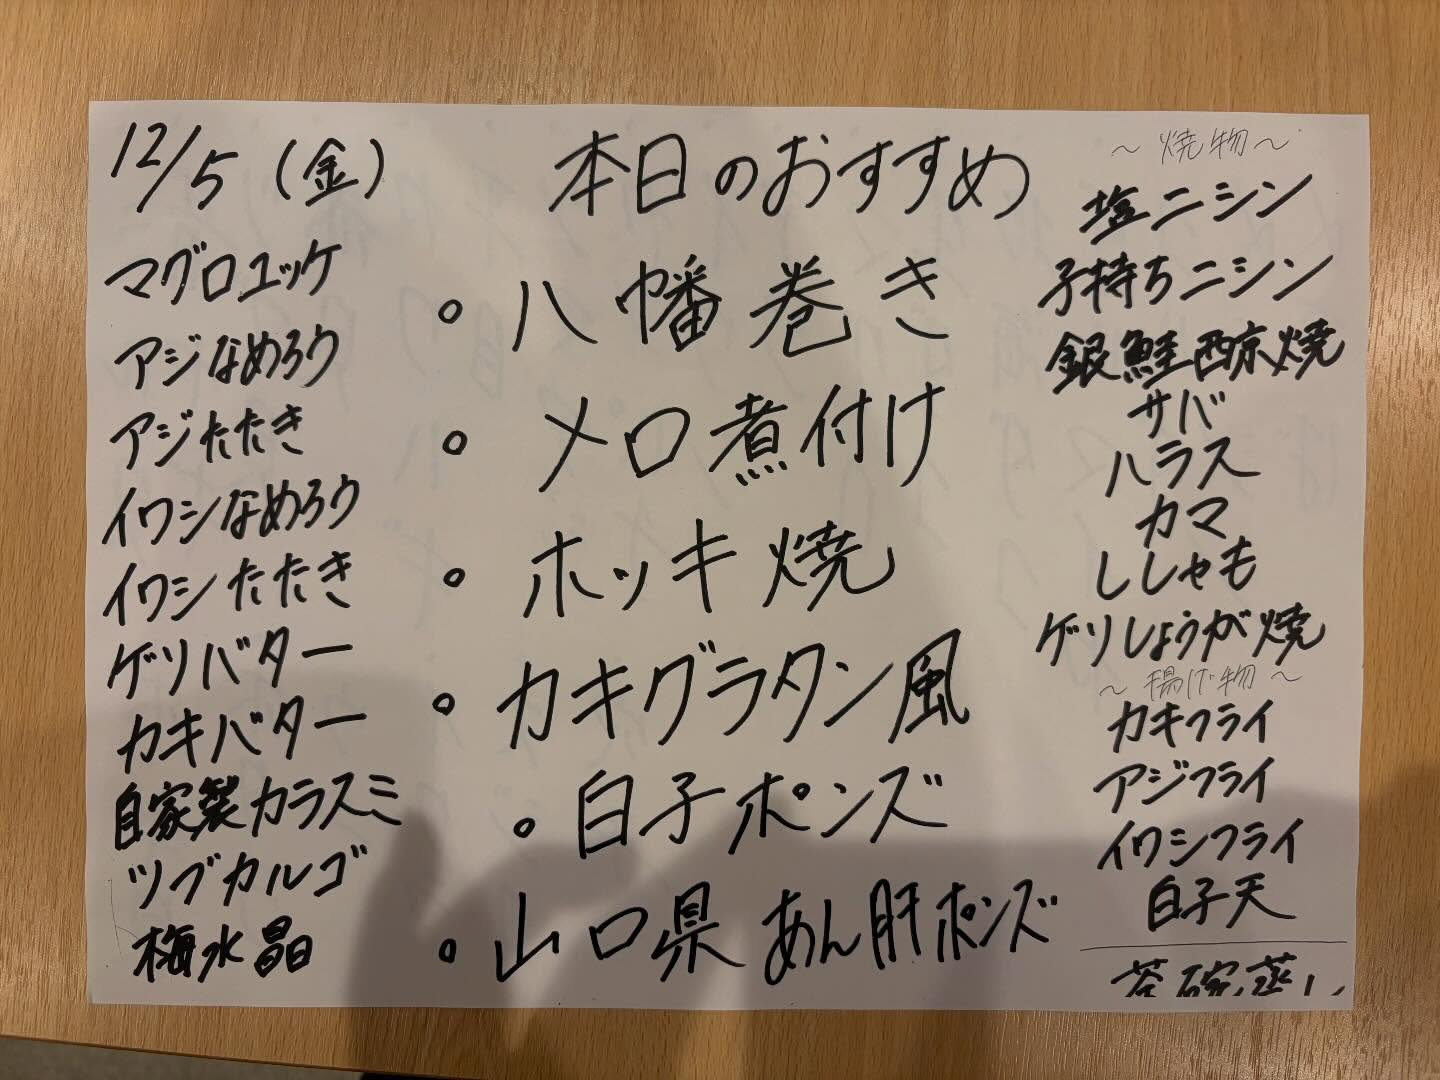 12/5（金）
本日のおすすめ
マグロユッケ
アジなめろう
アジたたき
イワシなめろう
イワシたたき
ゲソバター
カキバター
自家製カラスミ
ツブカルゴ
梅水晶
・八幡巻き
・メロ煮付け
・ホッキ焼
・カキグラタン風
・白子ポンズ
・山口県あん肝ポンズ
～焼物～
塩ニシン
子持ちニシン
銀鮭西京焼
サバ
ハラス
カマ
ししゃも
ゲソしょうが焼
～揚げ物～
カキフライ
アジフライ
イワシフライ
白子天
茶碗蒸し